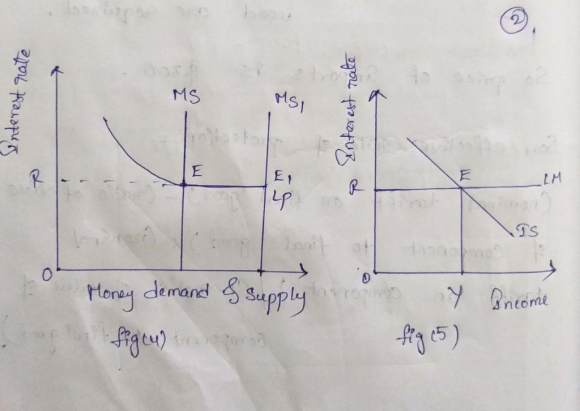 2.
Interest rate
MS
MS1
R
E
E1
LP
O
Money demand & Supply
fig(4)
Interest rate
R
E
LM
IS
O
Y
Income
fig(5)